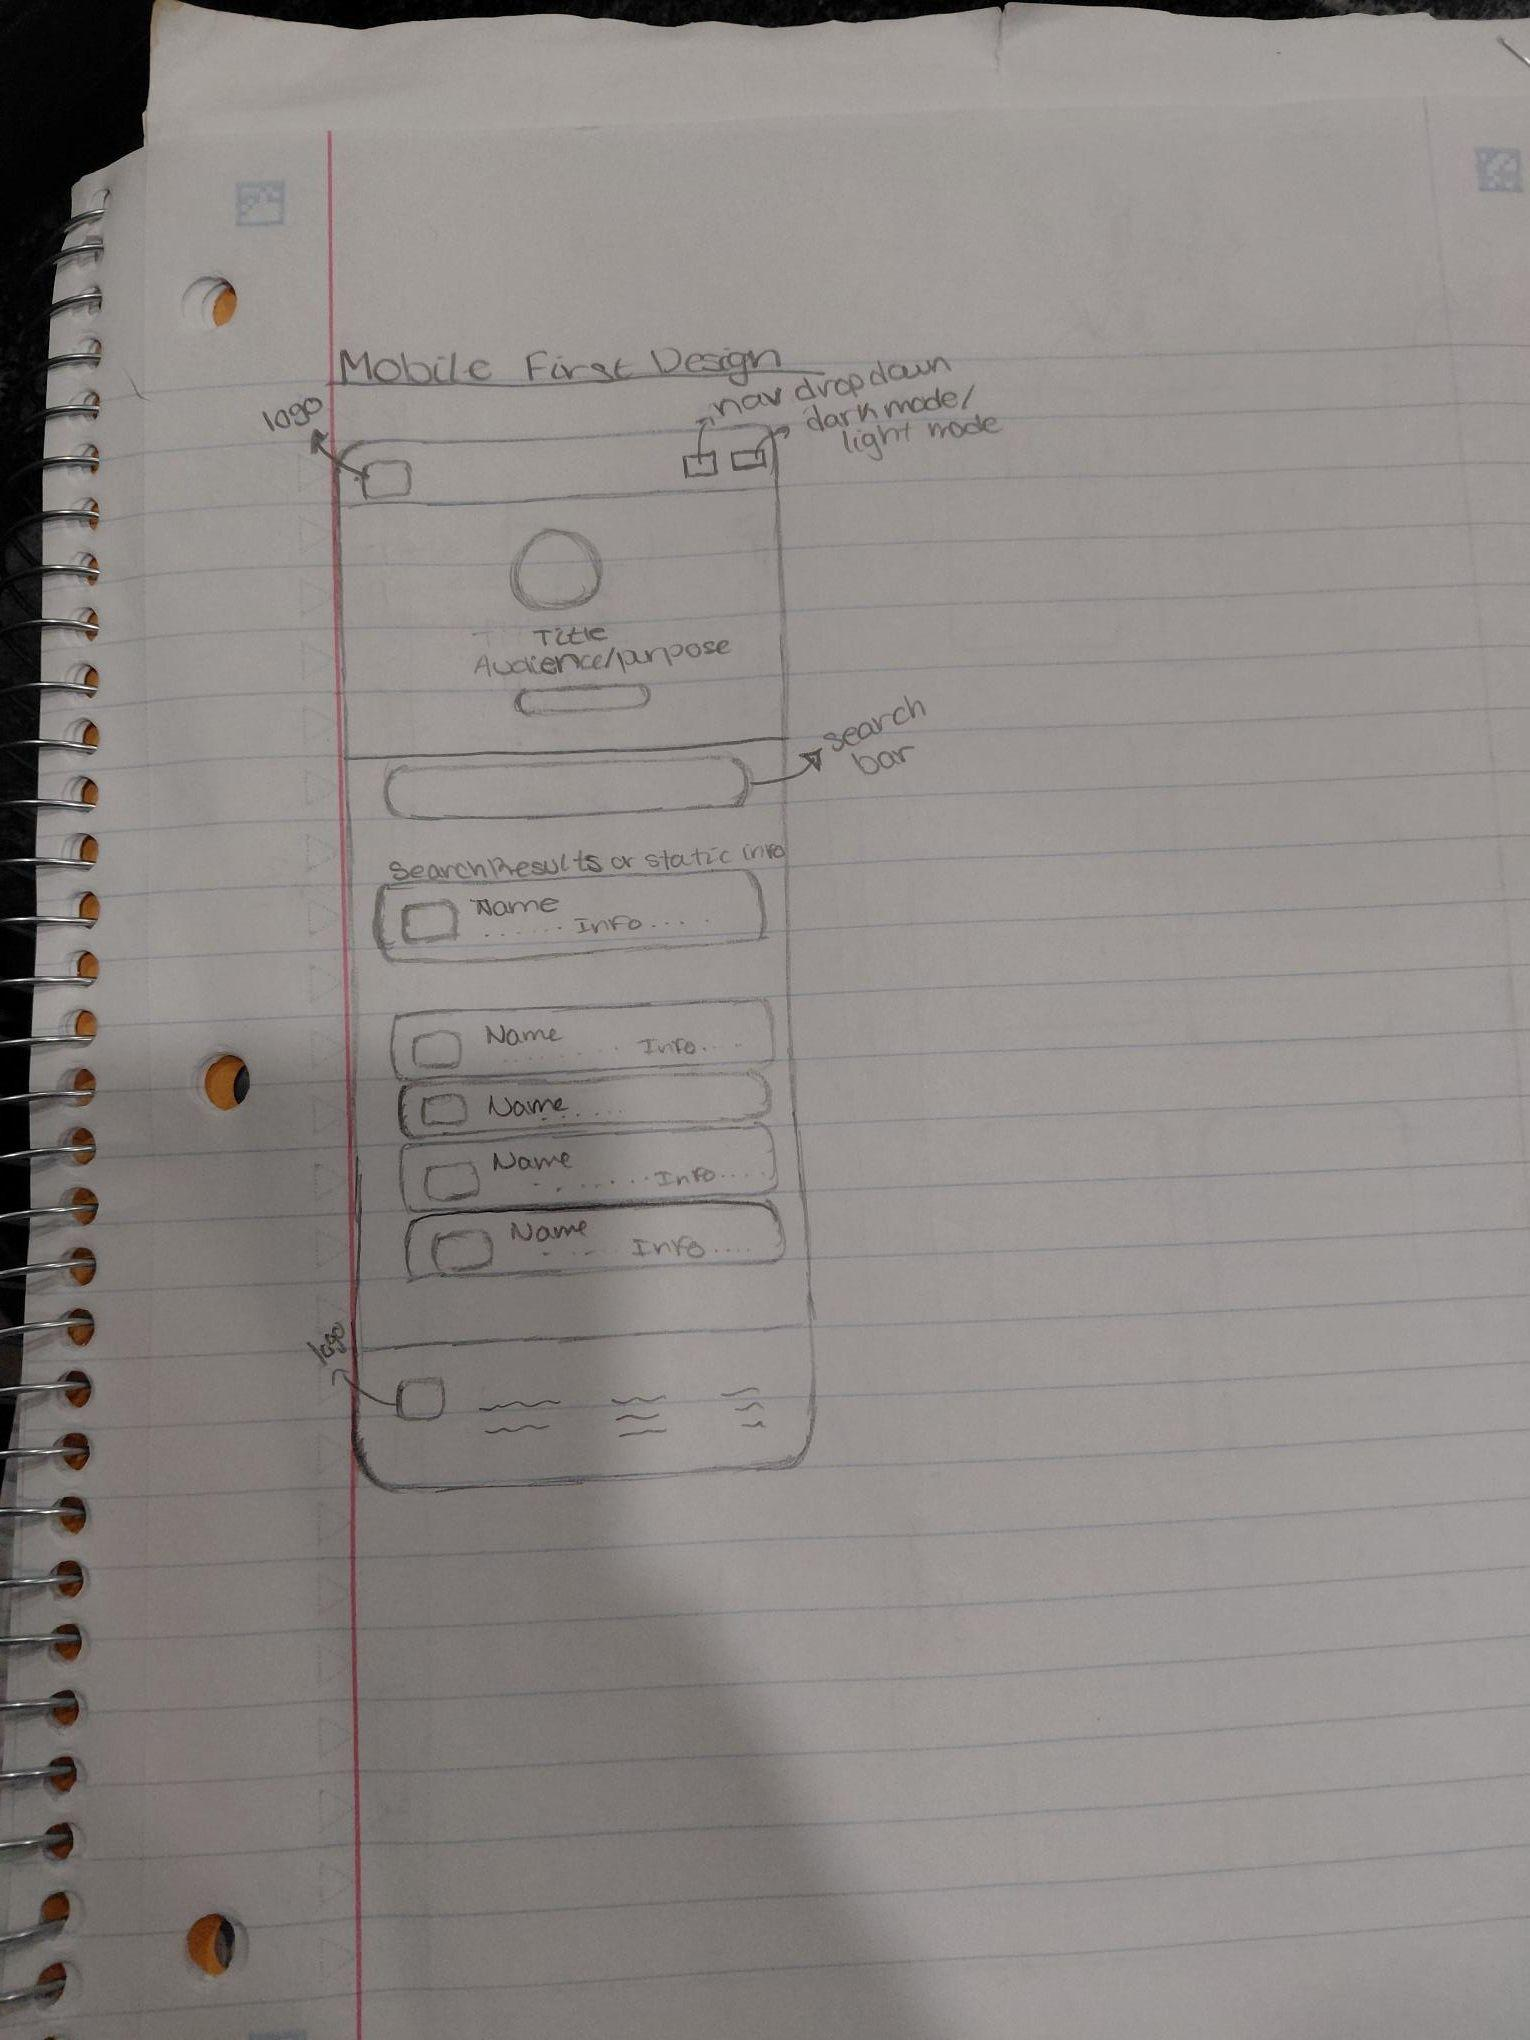 Mobile First Design
logo
nav drop down
dark mode/
light mode
Title
Audience/purpose
search
bar
Search Results or static info
Name
...... Info....
Name
........ Info....
Name
......
Name
........ Info....
Name
.... Info....
logo